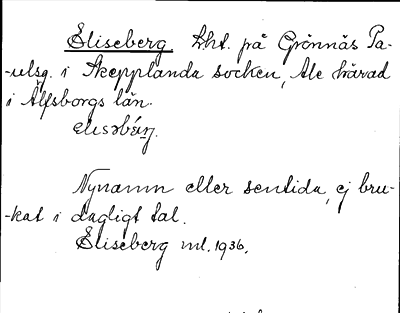 Eliseberg lht. på Grönnäs Pa-
-ulsg. i Skepplanda socken, Ale härad
i Älfsborgs län.
Nynamn eller sentida, ej bru-
-kat i dagligt tal.
Eliseberg ml. 1936.